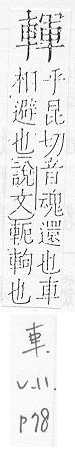 輝
乎昆切音魂還也車
相避也說文軛軥也
車.
v.11.
p78